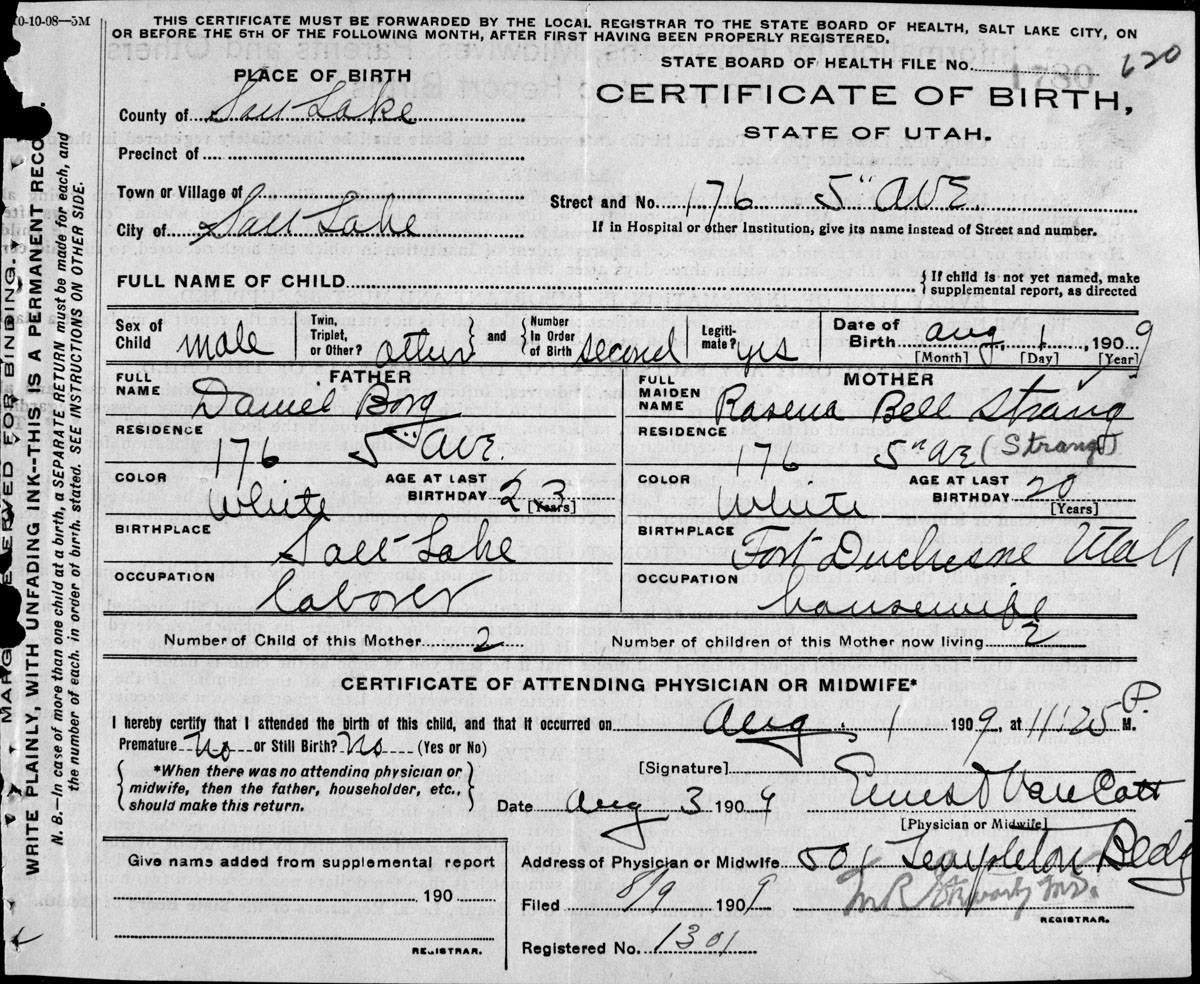 10-10-08—3M
THIS CERTIFICATE MUST BE FORWARDED BY THE LOCAL REGISTRAR TO THE STATE BOARD OF HEALTH, SALT LAKE CITY, ON
OR BEFORE THE 5TH OF THE FOLLOWING MONTH, AFTER FIRST HAVING BEEN PROPERLY REGISTERED.
STATE BOARD OF HEALTH FILE No. 620
PLACE OF BIRTH
CERTIFICATE OF BIRTH,
STATE OF UTAH.
County of Salt Lake
Precinct of
Town or Village of
Street and No. 176 5" AVE.
City of Salt Lake
If in Hospital or other Institution, give its name instead of Street and number.
FULL NAME OF CHILD
{ If child is not yet named, make
supplemental report, as directed
Sex of Child male
Twin, Triplet, or Other? other
and
Number In Order of Birth second
Legitimate? yes
Date of Birth Aug. 1, 1909
[Month] [Day] [Year]
FATHER
FULL NAME Daniel Borg
RESIDENCE 176 5" AVE.
COLOR White
AGE AT LAST BIRTHDAY 23
[Years]
BIRTHPLACE Salt Lake
OCCUPATION laborer
MOTHER
FULL MAIDEN NAME Rasena Bell Strang
RESIDENCE 176 5" AVE (Strang)
COLOR White
AGE AT LAST BIRTHDAY 20
[Years]
BIRTHPLACE Fort Duchesne Utah
OCCUPATION housewife
Number of Child of this Mother 2
Number of children of this Mother now living 2
CERTIFICATE OF ATTENDING PHYSICIAN OR MIDWIFE*
I hereby certify that I attended the birth of this child, and that it occurred on Aug. 1 1909, at 11:25 P. M.
Premature No or Still Birth? No (Yes or No)
*When there was no attending physician or
midwife, then the father, householder, etc.,
should make this return.
[Signature] Ernest Van Cott
Date Aug 3 1909
[Physician or Midwife]
Give name added from supplemental report
190
REGISTRAR.
Address of Physician or Midwife 501 Templeton Bldg
Filed 8/9 1909
REGISTRAR.
Registered No. 1301
MARGIN RESERVED FOR BINDING.
WRITE PLAINLY, WITH UNFADING INK--THIS IS A PERMANENT RECO
N. B.—In case of more than one child at a birth, a SEPARATE RETURN must be made for each, and
the number of each, in order of birth, stated. SEE INSTRUCTIONS ON OTHER SIDE.